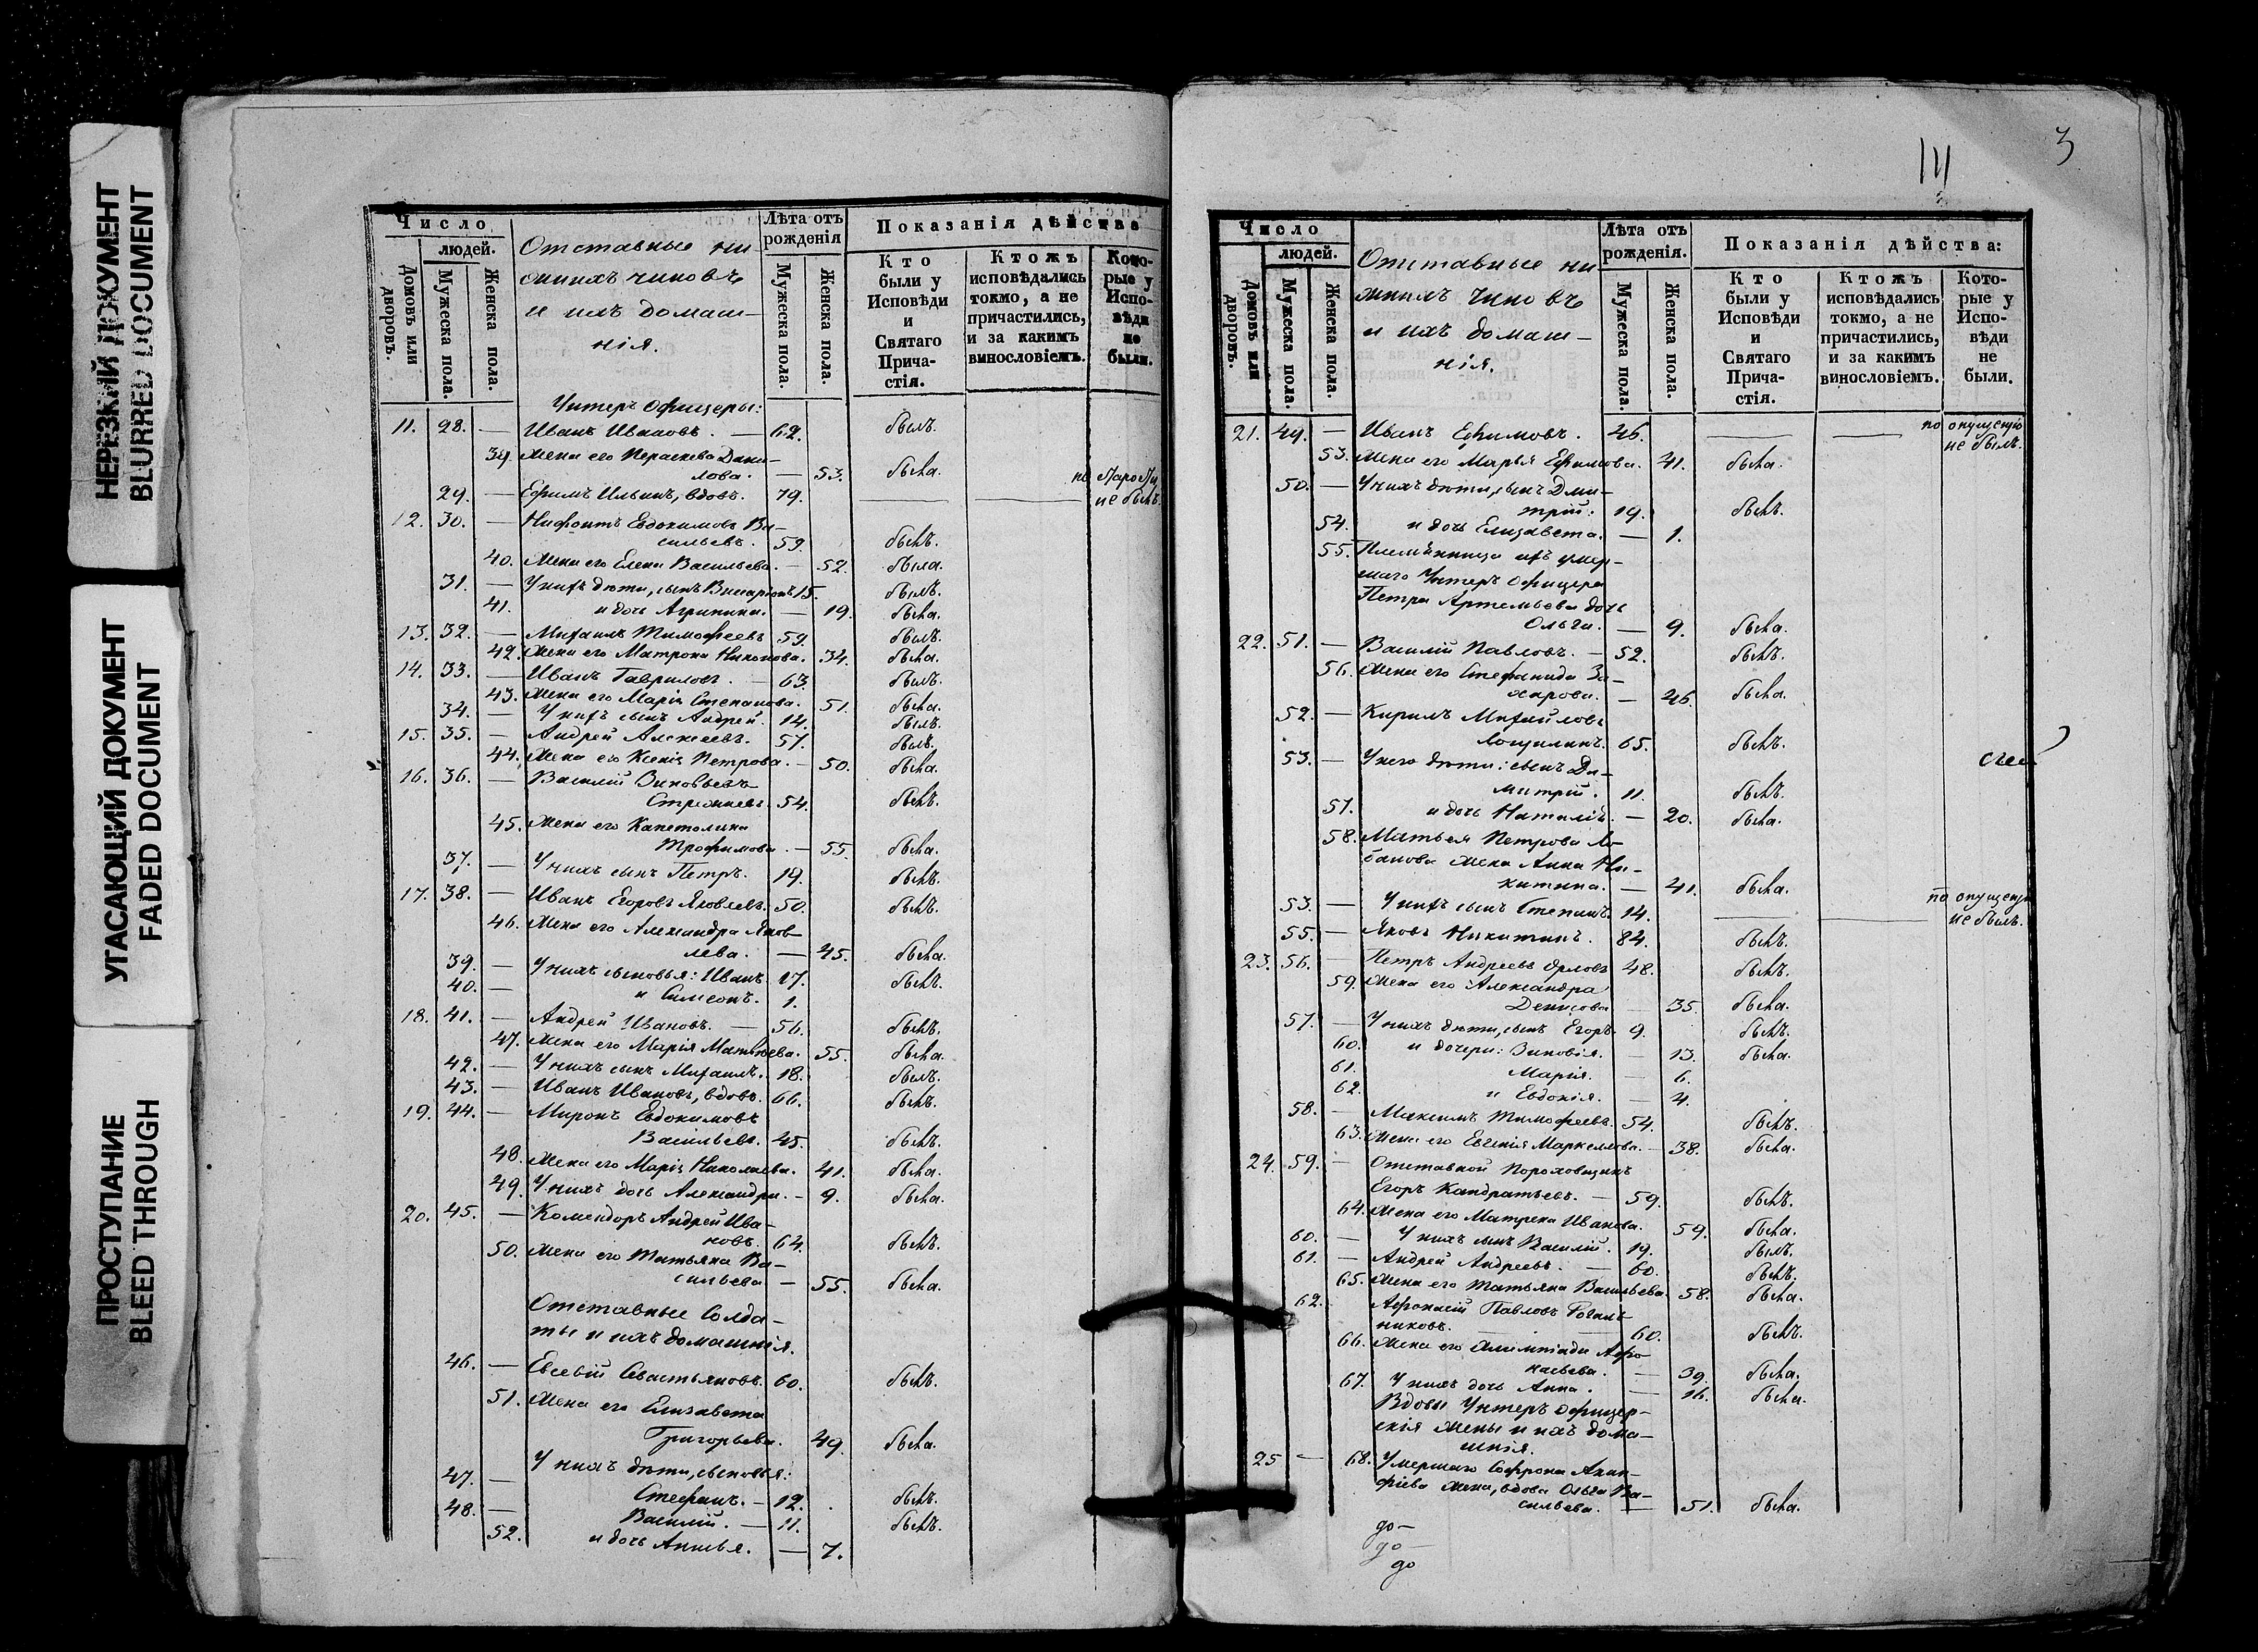 НЕРЕЗКИЙ ДОКУМЕНТ
BLURRED DOCUMENT
УГАСАЮЩИЙ ДОКУМЕНТ
FADED DOCUMENT
ПРОСТУПАНИЕ
BLEED THROUGH
Число
людей.
Домовъ или дворовъ.
Мужеска пола.
Женска пола.
Отставные ни
жнихъ чиновъ
и ихъ домаш-
нія.
Лѣта отъ рожденія
Мужеска пола.
Женска пола.
Показанія дѣйства
Кто были у Исповѣди и Святаго Прича-стія.
Ктожъ исповѣдались токмо, а не причастились, и за какимъ винословіемъ.
Кото-рые у Испо-вѣди не были.
Унтеръ Офицеры:
11. 28. — Иванъ Ивановъ. — 62. былъ.
39. Жена его Параскева Дани-
лова. — 53. была.
29. — Ефимъ Ильинъ, вдовъ. 79. не былъ.
12. 30. — Нифонтъ Евдокимовъ Ва-
сильевъ. 59. былъ.
40. Жена его Елена Васильева. — 52. была.
31. — У нихъ дѣти, сынъ Виссаріонъ 15. былъ.
41. и дочь Агрипина. — 19. была.
13. 32. — Михаилъ Тимофеевъ 59. былъ.
42. Жена его Матрона Никонова. 34. была.
14. 33. — Иванъ Гавриловъ. — 63. былъ.
43. Жена его Марія Степанова. 51. была.
34. — У нихъ сынъ Андрей. 14. былъ.
15. 35. — Андрей Алексеевъ. 57. былъ.
44. Жена его Ксенія Петрова. — 50. была.
16. 36. — Василій Зиновьевъ
54. былъ.
45. Жена его Капетолина
Трофимова. — 55. была.
37. — У нихъ сынъ Петръ. 19. былъ.
17. 38. — Иванъ Егоровъ Яковлевъ. 50. былъ.
46. Жена его Александра Яков
лева. — 45. была.
39. — У нихъ сыновья: Иванъ 17. былъ.
40. — и Симеонъ. 1.
18. 41. — Андрей Ивановъ. — 56. былъ.
47. Жена его Марія Матвѣева. 55. была.
42. — У нихъ сынъ Михаилъ. 18. былъ.
43. — Иванъ Ивановъ, вдовъ. 66. былъ.
19. 44. — Миронъ Евдокимовъ
Васильевъ. 45. былъ.
48. Жена его Марія Николаева. 41. была.
49. У нихъ дочь Александра. — 9. была.
20. 45. — Комендоръ Андрей Ива-
новъ. 64. былъ.
50. Жена его Татьяна Ва-
сильева — 55. была.
Отставные Солда-
ты и ихъ домашнія.
46. — Евсевій Севастьяновъ. 60. былъ.
51. Жена его Елизавета
Григорьева. 49. была.
У нихъ дѣти, сыновья:
47. — Стефанъ. — 12. былъ.
48. — Василій. — 11. былъ.
52. и дочь — 7.
3
Число
людей.
Домовъ или дворовъ.
Мужеска пола.
Женска пола.
Отставные ни
жнихъ чиновъ
и ихъ домаш-
нія.
Лѣта отъ рожденія.
Мужеска пола.
Женска пола.
Показанія дѣйства:
Кто были у Исповѣди и Святаго Прича-стія.
Ктожъ исповѣдались токмо, а не причастились, и за какимъ винословіемъ.
Кото-рые у Испо-вѣди не были.
21. 49. — Иванъ Ефимовъ. 46. — — по опущенію
не былъ.
53. Жена его Марья Ефимова. 41. была.
50. — У нихъ дѣти, сынъ Дми-
трій: 19. былъ.
54. и дочь Елизавета. — 1.
55. Племянница ихъ умер-
шаго Унтеръ Офицера
Петра Артемьева дочь
Ольга. — 9. была.
22. 51. — Василій Павловъ. — 52. былъ.
56. Жена его Стефанида За-
харова. — 46. была.
52. — Кирилъ Михайловъ
65. былъ.
53. — У него дѣти: сынъ Ди-
митрій. 11. былъ.
57. и дочь Наталія. — 20. была.
58. Матвея Петрова Ло-
банова жена Анна Ни-
китина. — 41. была.
53. — У нихъ сынъ Степанъ 14. — — по опущенію
не былъ.
55. — Яковъ Никитинъ. 84. былъ.
23. 56. — Петръ Андреевъ Орловъ 48. былъ.
59. Жена его Александра
Денисова 35. была.
57. — У нихъ дѣти, сынъ Егоръ 9. былъ.
60. и дочери: Зиновія. — 13. была.
61. Марія. — 6.
62. и Евдокія. — 4.
58. — Максимъ Тимофеевъ. 54. былъ.
63. Жена его Евгенія Маркеллова. — 38. была.
24. 59. — Отставной Пороховщикъ
Егоръ Кандратьевъ. — 59. былъ.
64. Жена его Матрена Иванова. 59. была.
60. — У нихъ сынъ Василій. 19. былъ.
61. — Андрей Андреевъ. — 60. былъ.
65. Жена его Татьяна Васильева. 58. была.
62. — Афонасій Павловъ
никовъ. 60. былъ.
66. Жена его Алимпіада Афо
насьева. — 39. была.
67. У нихъ дочь Анна. — 16. была.
Вдовы Унтеръ Офицер-
скія жены и ихъ дома-
шнія.
25 — 68. Умершаго Софрона Акин-
фіева жена, вдова Ольга Ва-
сильева. — 51. была.
до-
до-
до